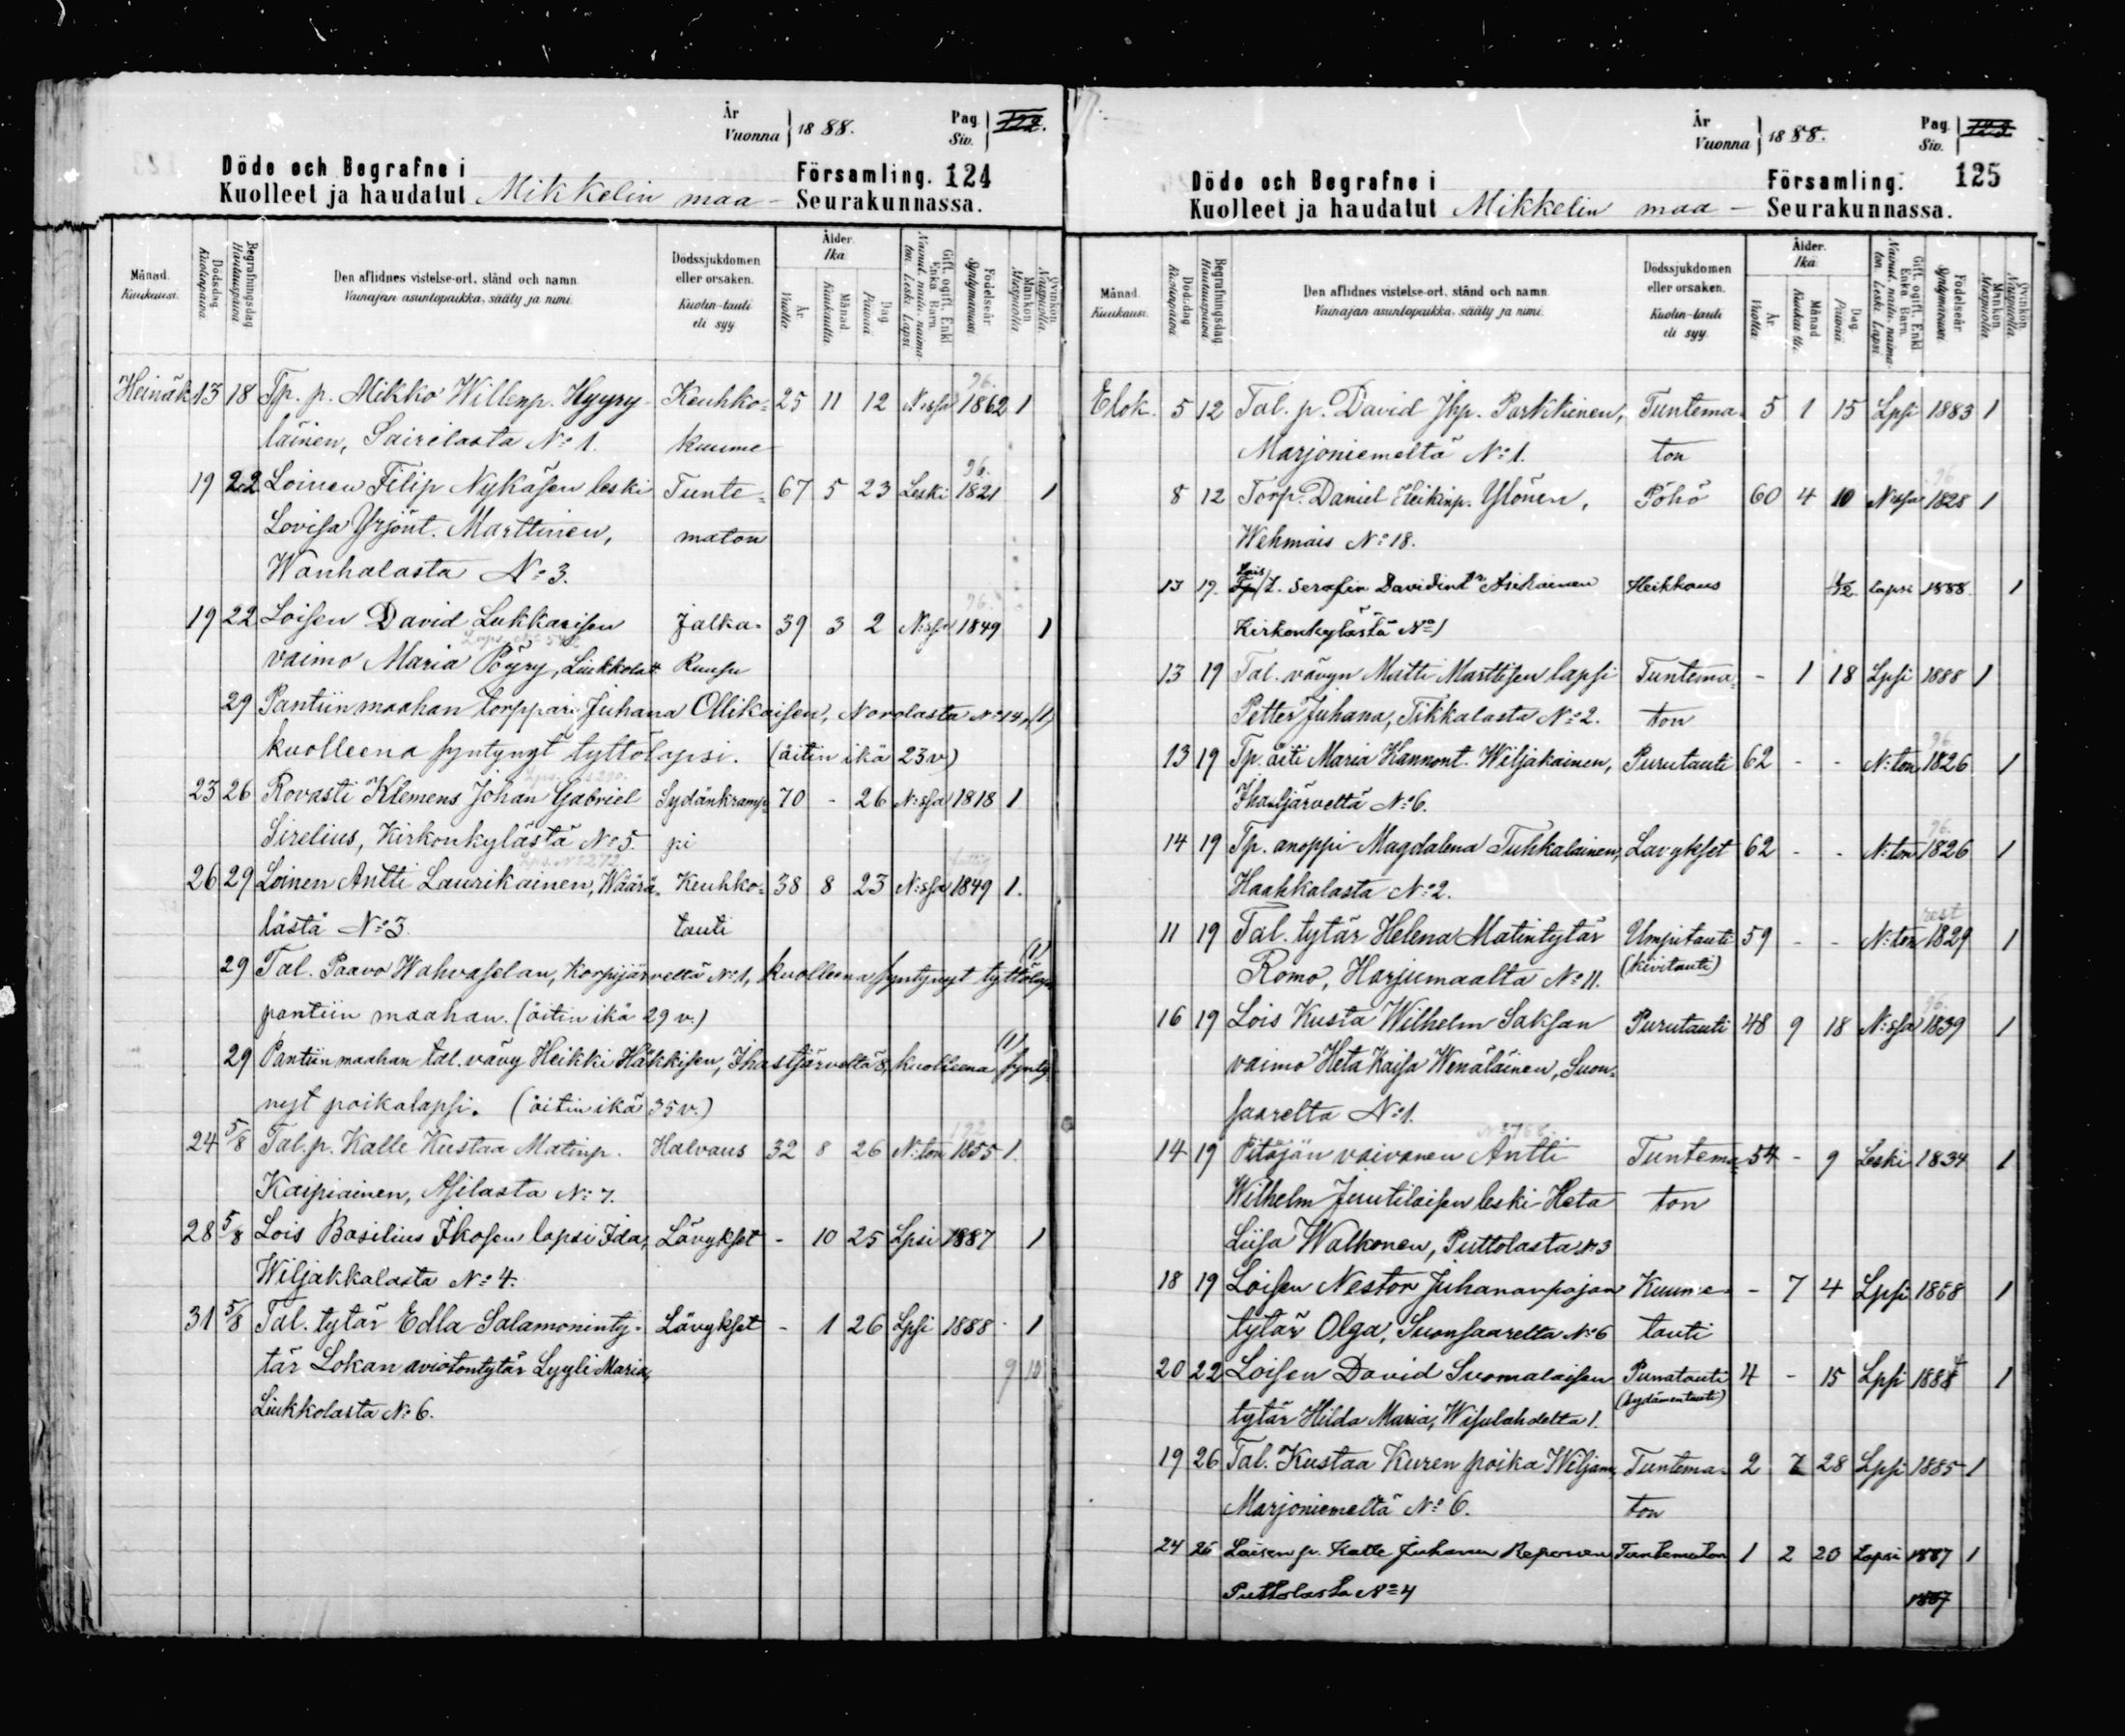 År
Vuonna 1888.
Pag.
Siv. 122.
Döde och Begrafne i Församling. 124
Kuolleet ja haudatut Mikkelin maa- Seurakunnassa.
Månad. Kuukausi.
Dödsdag Kuolinpäivä
Begrafningsdag Hautauspäivä
Den aflidnes vistelse-ort, stånd och namn.
Vainajan asuntopaikka, sääty ja nimi.
Dödssjukdomen eller orsaken.
Kuolin-tauti eli syy
Ålder. Ikä
År Vuotta
Månad Kuukautta
Dag Päivää
Gift, ogift, Enkl. Enka. Barn.
Nainut, naimaton. Leski. Lapsi.
Födelseår Syntymävuosi
Mankön Miespuolia
Qvinkön Naispuolia
Heinäk. 13 18 Tp. p. Mikko Willenp. Hyyry- Keuhko- 25 11 12 N:ssa 96. 1862 1
läinen, Sairilasta No 1. kuume
19 22 Loinen Filip Nykäsen leski Tunte- 67 5 23 Leski 96. 1821 1
Lovisa Yrjönt. Marttinen, maton
Wanhalasta No 3.
19 22 Loisen David Lukkarisen Jalka- 39 3 2 N:ssa 96. 1849 1
vaimo Maria Pöyry, Liukkolat. Ruusu
29 Pantiin maahan torppari Juhana Ollikaisen, Norolasta No 14, (1)
kuolleena syntynyt tyttölapsi. (äitin ikä 23 v)
23 26 Rovasti Klemens Johan Gabriel Sydänkramp- 70 - 26 N:ssa 1818 1
Sirelius, Kirkonkylästä No 5. pi
26 29 Loinen Antti Laurikainen, Wäärä- Keuhko- 38 8 23 N:ssa 1849 1.
lästä No 3. tauti
29 Tal. Paavo Wahvaselan, Korpijärveltä No 1, kuolleena syntynyt tyttölaps (1)
pantiin maahan. (äitin ikä 29 v.)
29 Pantiin maahan tal. vävy Heikki Häkkisen, Ihastjärveltä 8, kuolleena synty- (1)
nyt poikalapsi. (äitin ikä 35 v.)
24 5/8 Tal. p. Kalle Kustaa Matinp. Halvaus 32 8 26 N:ton 1855 1.
Kaipiainen, Asilasta No 7.
28 5/8 Lois Basilius Ihosen lapsi Ida, Lävykset - 10 25 Lpsi 1887 1
Wiljakkalasta No 4.
31 5/8 Tal. tytär Edla Salamoninty- Lävykset - 1 26 Lpsi 1888 1
tär Lokan aviotontytär Lyyli Maria, 9 10
Liukkolasta No 6.
År
Vuonna 1888.
Pag.
Siv. 123
Döde och Begrafne i Församling. 125
Kuolleet ja haudatut Mikkelin maa- Seurakunnassa.
Månad. Kuukausi.
Dödsdag Kuolinpäivä
Begrafningsdag Hautauspäivä
Den aflidnes vistelse-ort, stånd och namn.
Vainajan asuntopaikka, sääty ja nimi.
Dödssjukdomen eller orsaken.
Kuolin-tauti eli syy
Ålder. Ikä
År Vuotta
Månad Kuukautta
Dag Päivää
Gift, ogift, Enkl. Enka. Barn.
Nainut, naimaton. Leski. Lapsi.
Födelseår Syntymävuosi
Mankön Miespuolia
Qvinkön Naispuolia
Elok. 5 12 Tal. p. David Jhp. Parkkinen, Tuntema- 5 1 15 Lpsi 1883 1
Marjoniemeltä No 1. ton
8 12 Torp. Daniel Heikinp. Ylönen, Pöhö 60 4 10 N:ssa 96 1828 1
Wehmais No 18.
13 19. Lois Tp/l. Serafia Davidint. Asikainen Heikkous 1/2 lapsi 1888. 1
Kirkonkylästä No 1
13 19 Tal. vävyn Matti Marttisen lapsi Tuntema- - 1 18 Lpsi 1888 1
Petter Juhana, Tikkalasta No 2. ton
13 19 Tp. äiti Maria Hannont. Wiljakainen, Purutauti 62 - - N:ton 96 1826 1
Ihastjärveltä No 6.
14 19 Tp. anoppi Magdalena Tuhkalainen, Lavykset 62 - - N:ton 96. 1826 1
Haahkalasta No 2.
11 19 Tal. tytär Helena Matintytär Umpitauti 59 - - N:ton rest 1829 1
Romo, Harjumaalta No 11. (kivitauti)
16 19 Lois Kusta Wilhelm Saksan Purutauti 48 9 18 N:ssa 96. 1839 1
vaimo Heta Kaisa Wenäläinen, Suon-
saarelta No 1.
14 19 Pitäjän vaivanen Antti Tuntema- 54 - 9 Leski 1834 1
Wilhelm Juutilaisen leski Heta ton
Liisa Walkonen, Puttolasta N. 3
18 19 Loisen Nestor Juhananpojan Kuume- - 7 4 Lpsi 1868 1
tytär Olga, Suonsaarelta No 6 tauti
20 22 Loisen David Suomalaisen Punatauti 4 - 15 Lpsi 1884 1
tytär Hilda Maria, Wisulahdelta 1. (sydämentauti)
19 26 Tal. Kustaa Kuren poika Wiljam, Tuntema- 2 7 28 Lpsi 1885 1
Marjoniemeltä No 6. ton
24 26 Loisen p. Kalle Juhana Reponen Tuntematon 1 2 20 Lapsi 1887 1
Puttolasta No 4 1887